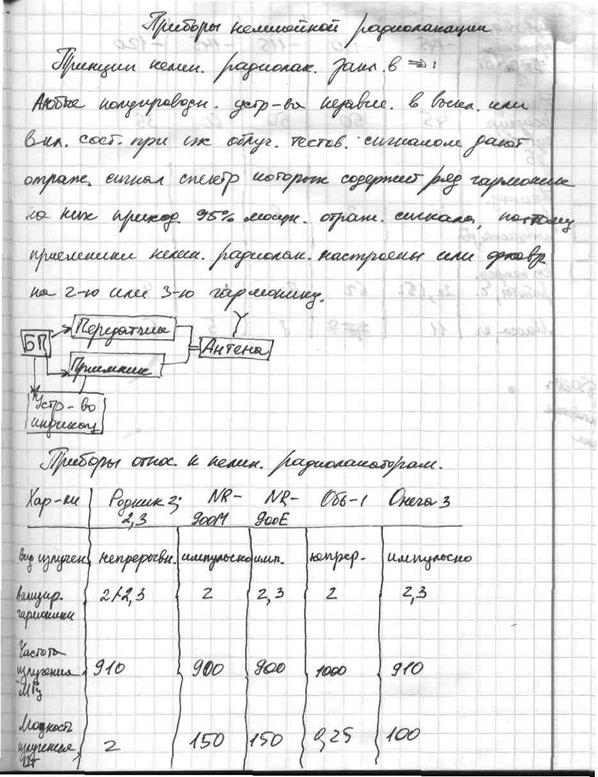 Приборы нелинейной радиолокации
Принцип нелин. радиолок. закл. в ⇒:
Любые полупроводн. устр-ва независ. в выкл. или
вкл. сост. при их облуч. тестов. сигналом дают
отраж. сигнал спектр которых содержит ряд гармоник
на них приход. 95% мощн. отраж. сигнала, поэтому
приемники нелин. радиолок. настроены или
на 2-ю или 3-ю гармонику.
БП Передатчик
Приемник Антена
Устр-во
индикац
Приборы относ. к нелин. радиолокаторам.
Хар-ки Родник 2; NR- NR- Обь-1 Онега 3
2,3 900M 900E
Вид излучен непрерывн. импульсно имп. непрер. импульсно
гармоники 2 2,3 2 2,3
Частота
излучения 910 900 900 1000 910
МГц
Мощность
излучения 2 150 150 0,25 100
Вт